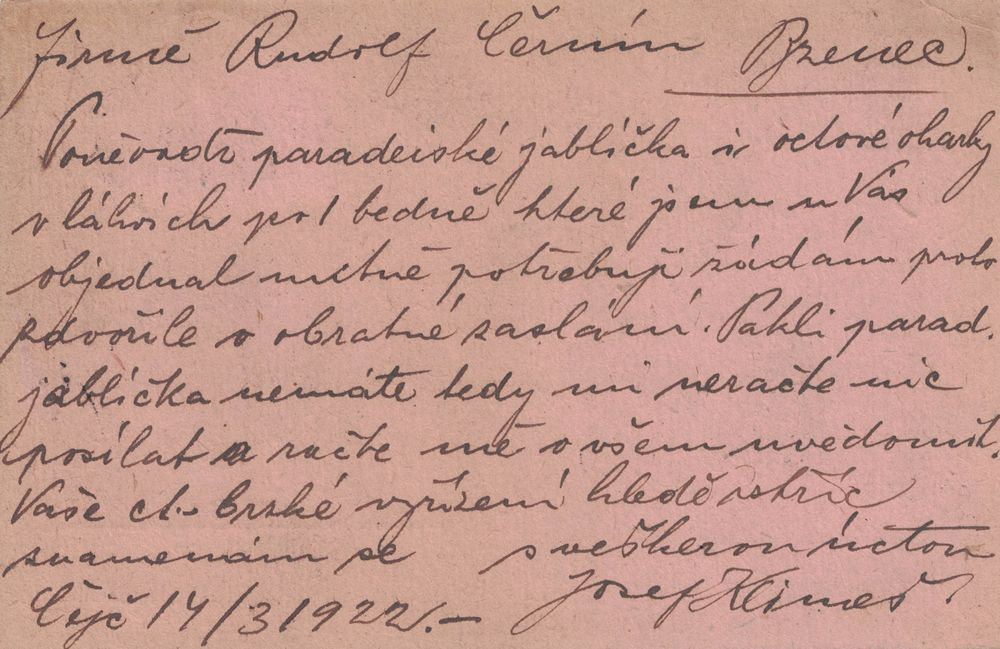 firmě Rudolf Černín Bzenec.
Poněvadž paradeiské jablíčka i octové okurky
v láhvích po 1 bedně které jsem u Vás
objednal nutně potřebuji žádám proto
zdvořile o obratné zaslání. Pakli parad.
jablíčka nemáte tedy mi neračte nic
posílat a račte mě o všem uvědomit.
Vaše ct. brzké vyřízení hledě vstříc
znamenám se s veškerou úctou
Josef Klimeš.
Čejč 14/3 1922.-